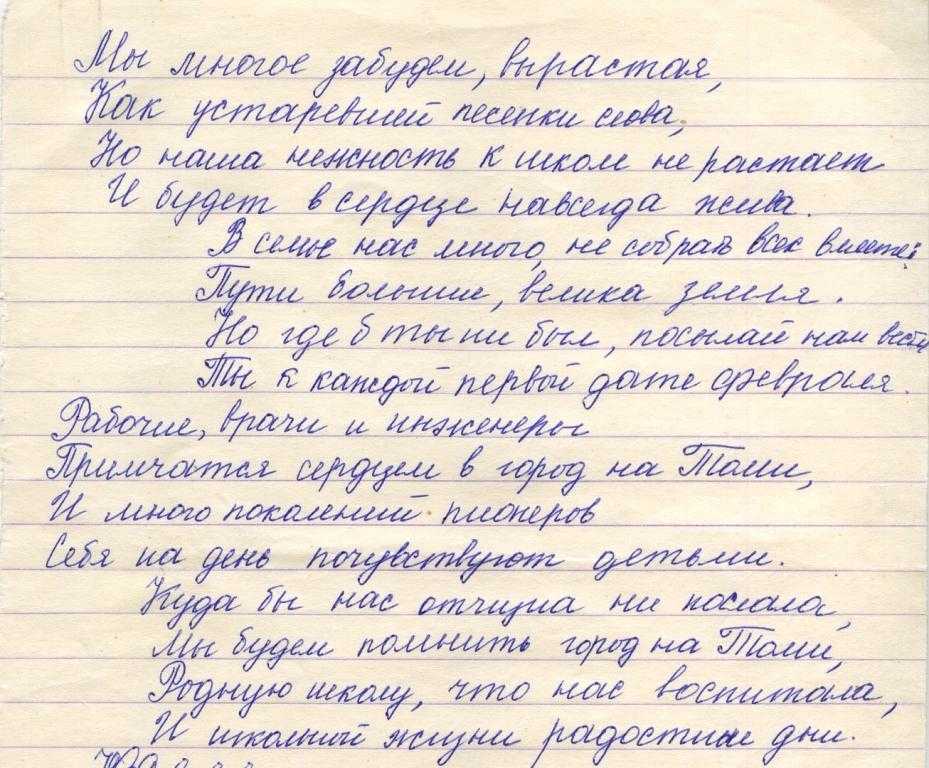 Мы многое забудем, вырастая,
Как устаревшей песенки слова,
Но наша нежность к школе не растает
И будет в сердце навсегда жива.
В семье нас много, не собрать всех вместе,
Пути большие, велика земля.
Но где б ты ни был, посылай нам вести
Ты к каждой первой дате февраля.
Рабочие, врачи и инженеры
Примчатся сердцем в город на Томи,
И много поколений пионеров
Себя на день почувствуют детьми.
Куда бы нас отчизна ни послала,
Мы будем помнить город на Томи,
Родную школу, что нас воспитала,
И школьной жизни радостные дни.